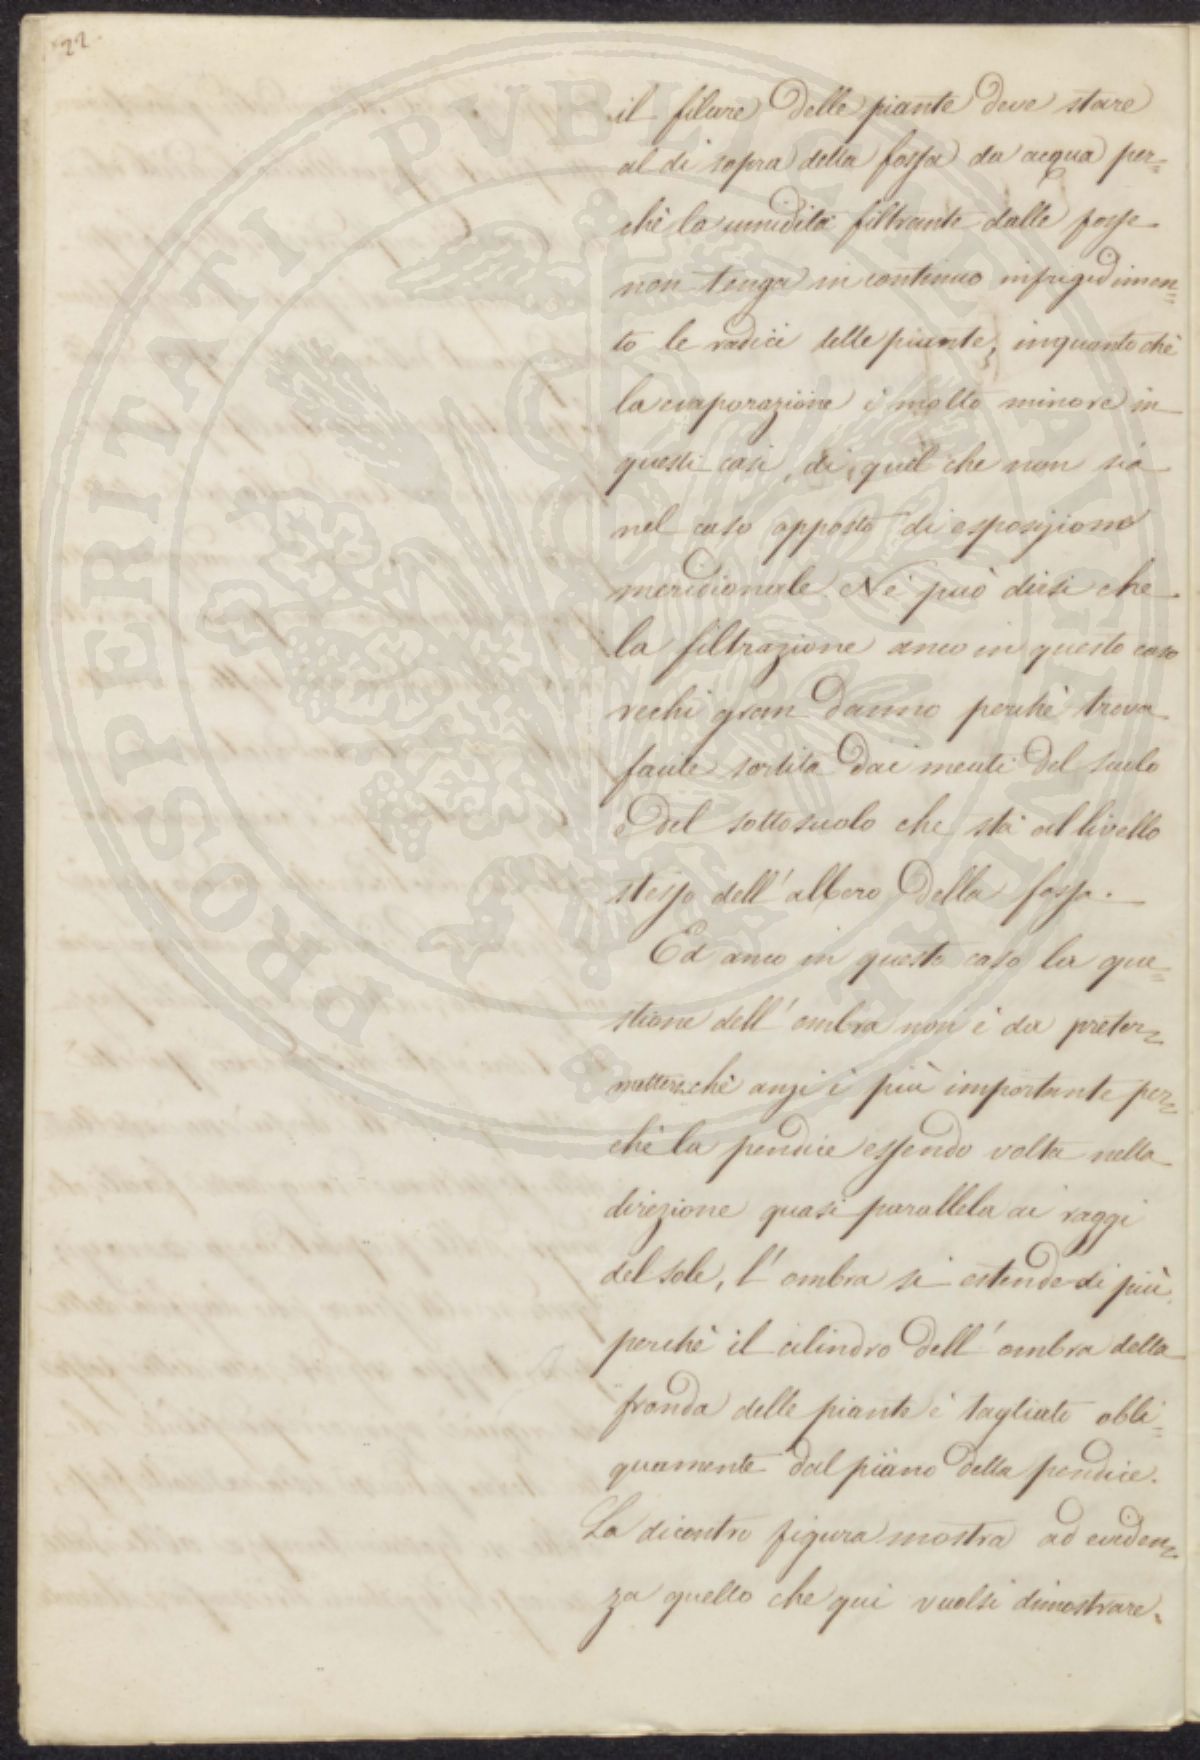 22
il filare delle piante deve stare
al di sopra della fossa da acqua per=
chè la umidità filtrante dalle fosse
non tenga in continuo infrigidimen=
to le radici delle piante, inquanto chè
la evaporazione è molto minore in
questi casi, di quel che non sia
nel caso opposto di esposizione
meridionale. Nè può dirsi che
la filtrazione anco in questo caso
rechi gran danno perchè trova
facile sortita dai meati del suolo
e del sottosuolo che stà al livello
stesso dell' albero della fossa.
Ed anco in questo caso la que=
stione dell' ombra non è da preter=
mettere chè anzi è più importante per=
chè la pendice essendo volta nella
direzione quasi parallela ai raggi
del sole, l' ombra si estende di più
perchè il cilindro dell' ombra della
fronda delle piante è tagliato obli=
quamente dal piano della pendice.
La dicontro figura mostra ad eviden=
za quello che qui vuolsi dimostrare.
PUBLICAE PROSPERITATI